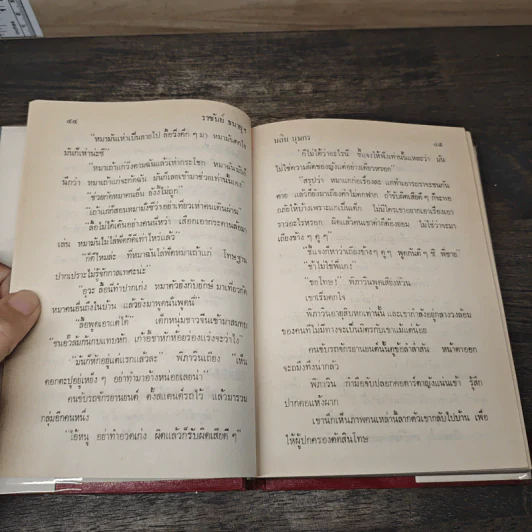 ๔๔ ราชันย์
"หมามันเห่าเป็นลายไป ลื้อจึงดึก ๆ มา หมามันตกใจ
มันก็เห่าน่ะซี"
"หมาเถ้าแก่วิ่งตามฉันแล้วเห่ากระโชก หมาฉันมันก็
นึกว่า หมาเถ้าแก่จะกัดฉัน มันก็เลยเข้ามาช่วยเท่านั้นเอง"
"ช่วยกัดหมาคนอื่น ยังงี้ไม่ถูก"
"เถ้าแก่ก็สอนหมามั่งซีว่าอย่าเที่ยวเห่าคนเดินผ่าน"
"ลื้อไม่ได้เดินอย่างคนนี่หว่า เลือกเอากระดานลื่นมา
เล่น หมามันไม่ไล่พัดก็ดีเท่าไหร่แล้ว"
"ก็ดีไหมล่ะ ที่หมาฉันไล่พัดหมาเถ้าแก่ โทษฐาน
ปากเปราะไม่รู้จักกาลเทศะน่ะ"
"อุวะ ลื้อนี่ทำปากเก่ง หมาตัวยังกับยักษ์ มาเที่ยวกัด
หมาคนอื่นถึงในบ้าน แล้วยังมาพูดนั่นพูดนี่"
"ลื้อพูดเอาแต่ได้" เด็กหนุ่มชาวจีนเข้ามาสมทบ
"ขนอวลัมก์กับแทยหัก เกาอี้ขาหักห้อยวงแรงจะว่าไง"
"ไม้นี่ก็หักอยู่แต่แรกแล้วละ" พิภาวันเถียง "เห็น
ดอกตะปูอยู่เหยง ๆ อย่าทำมาอ้างหน่อยเลยน่า"
คนขับรถจักรยานยนต์ ดงสแตนด์รถไว้ แล้วมารวม
กลุ่มอีกคนหนึ่ง
"ไอ้หนู อย่าทำอวดเก่ง ผิดแล้วก็รับผิดเสียดี ๆ"
นลิน บุษกร ๔๕
"ก็ไม่ได้ว่าอะไรนี่ ชี้แจงให้ฟังเท่านั้นแหละว่า มัน
ไม่ใช่ความผิดของญูงแต่อย่างเดียวหรอก"
"สรุปว่า หมาแกถ่อเรื่องละ แกท้าเยาะรอพระชนกัน
ตาย แล้วก็ยังมาเถียงคำไม่ตกฟาก ถ้ารับผิดเสียดี ๆ ก็จะหย
อกะไรบ้างเพราะแกเป็นเด็ก ไม่มีใครเขาอยากเอาเรื่องเอา
ราวอะไรหรอก ผิดแล้วคนเขาก็ต้องยอม ไม่ใช่ว่าจะมา
เถียงข้าง ๆ คู ๆ"
"ชี้แจงก็หาว่าเถียงข้าง ๆ คู ๆ พูดกันดี ๆ ซิ พี่ชาย"
"ข้าไม่ใช่พี่แก"
"ชกไหม" พิภาวันพูดเสียงห้วน
เขาเริ่มตกใจ
พิภาวันอายุสิบหกเท่านั้น และเขากำลังอยู่กลางวงล้อม
ของคนที่ไม่มีทางจะเป็นมิตรกับเขาแม้แต่น้อย
คนขับรถจักรยานยนต์นั้นดูข้อล่ำสัน หน้าตาออก
จะถมึงทึงน่ากลัว
พิภาวัน กำมือจับปลอกคอดารตาญูงแน่นเข้า รู้สึก
ปากคอแห้งผาก
เขานึกเห็นภาพคนเหล่านี้ลากตัวเขากลับไปบ้าน เพื่อ
ให้ผู้ปกครองตัดสินโทษ